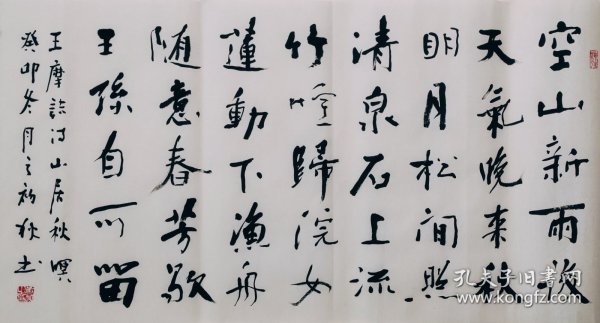 空山新雨後
天氣晚来秋
明月松间照
清泉石上流
竹喧歸浣女
蓮動下漁舟
随意春芳歇
王孫自可留
王摩詰诗山居秋暝
癸卯冬月之初 书
孔夫子旧书网
www.kongfz.com